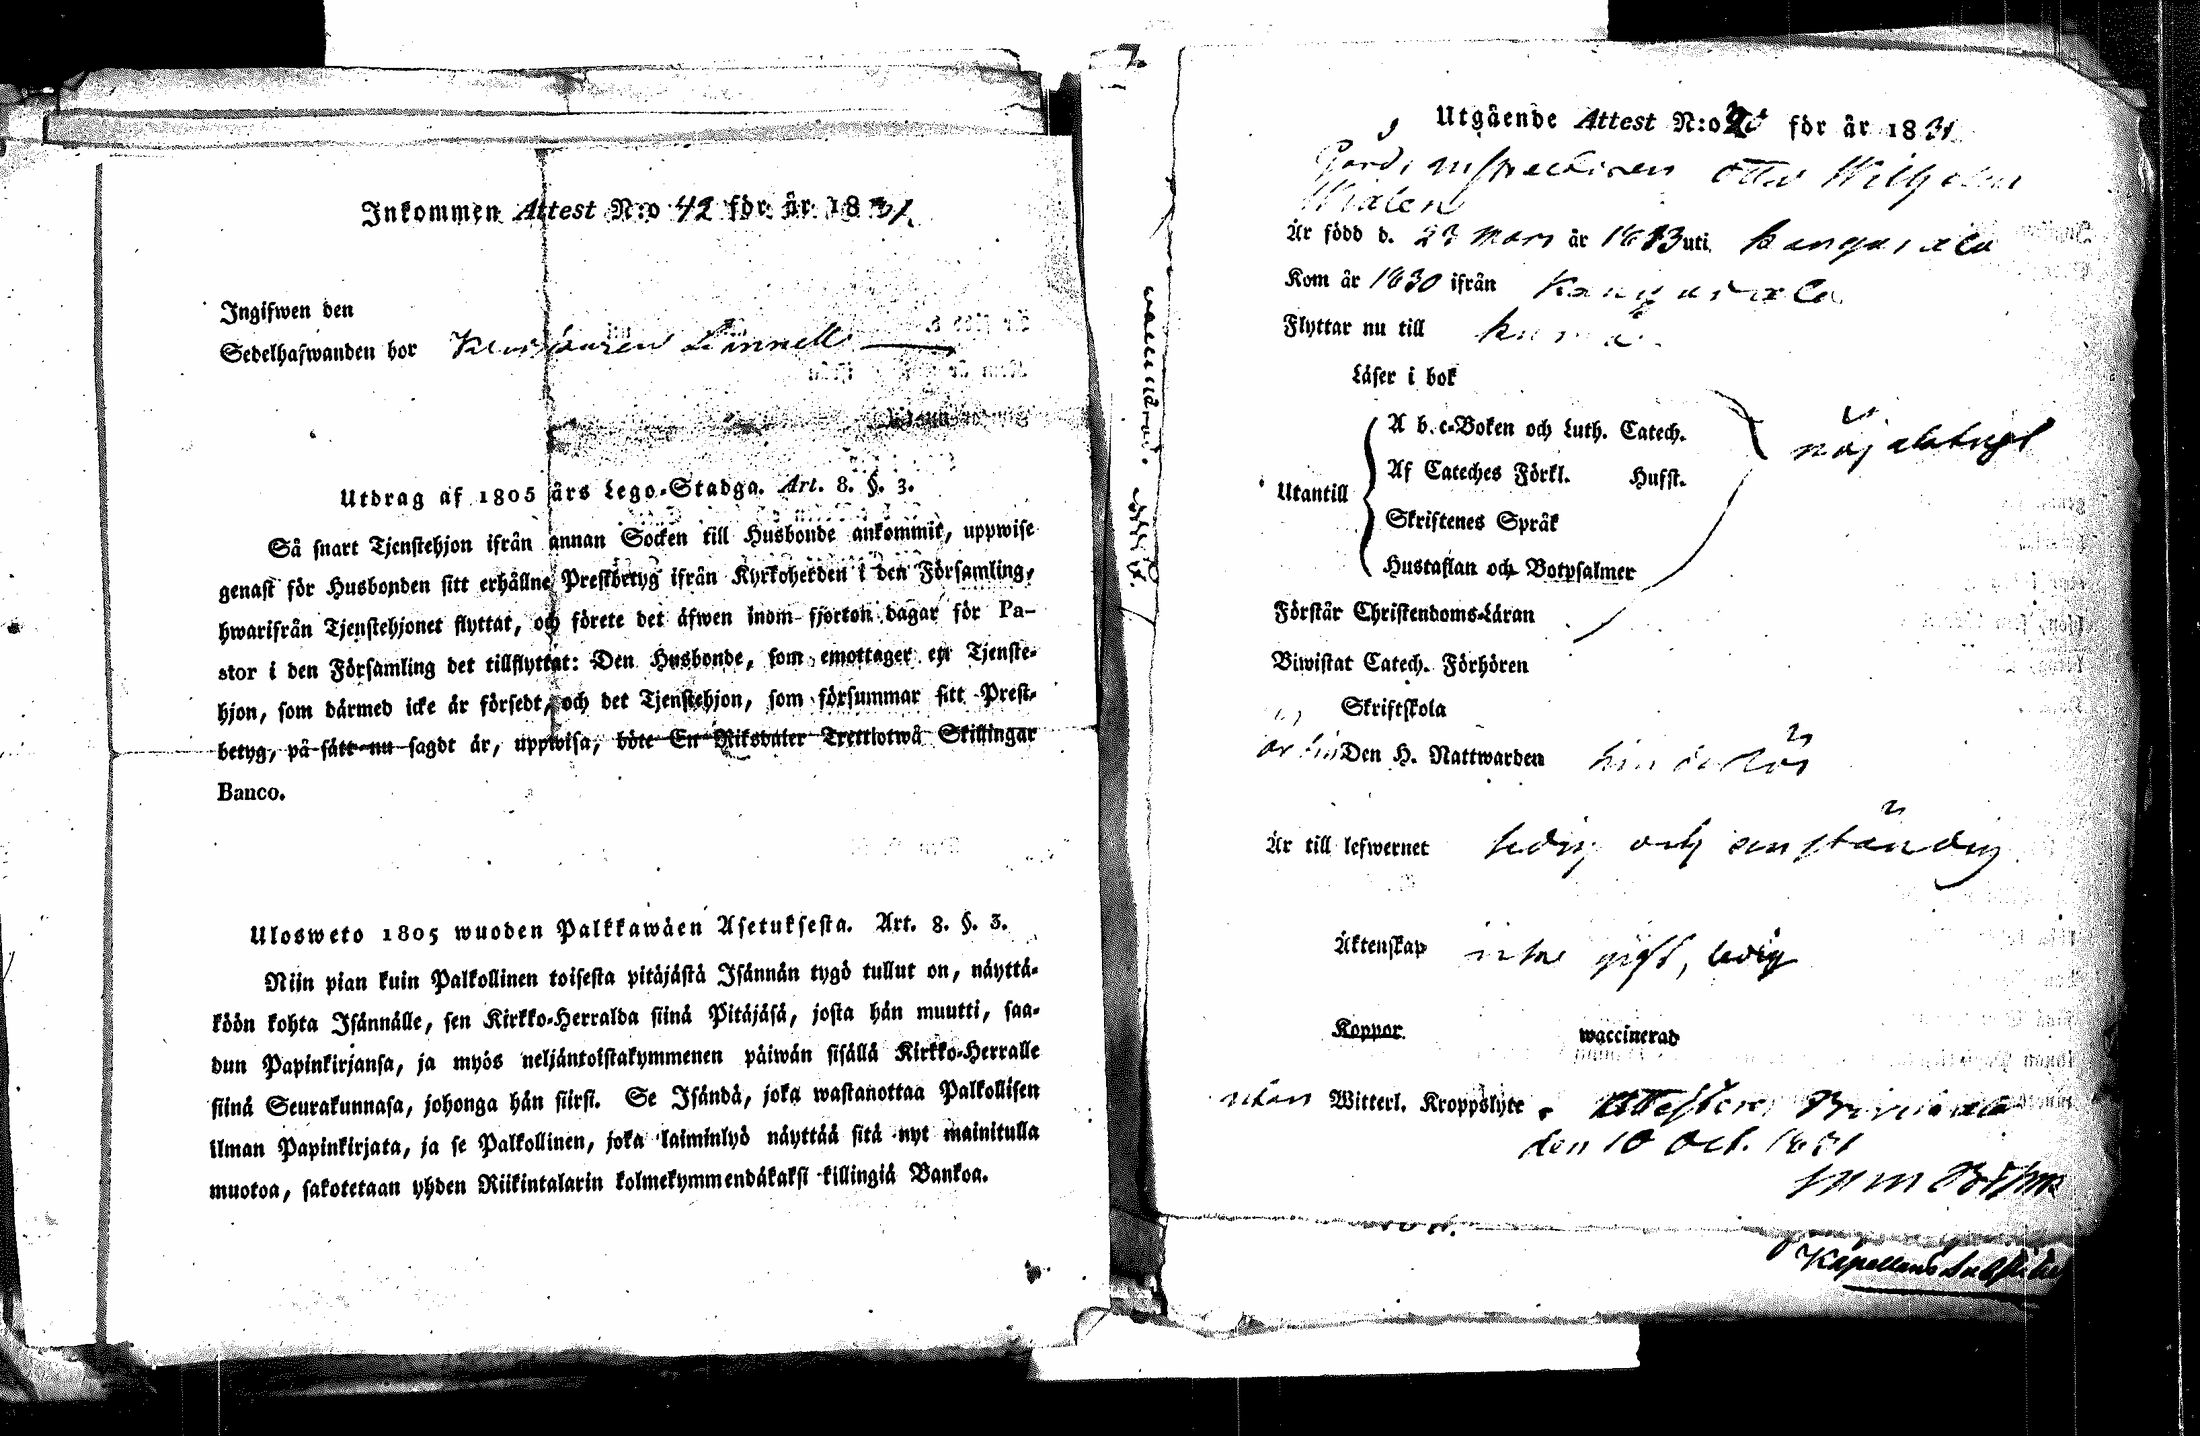 Inkommen Attest N:o 42 för år 1831.
Ingifwen den
Sedelhafwanden bor
Utdrag af 1805 års Lego-Stadga. Art. 8. §. 3.
Så snart Tjenstehjon ifrån annan Socken till Husbonde ankommit, uppwise
genast för Husbonden sitt erhållne Prestbetyg ifrån Kyrkoherden i den Församling,
hwarifrån Tjenstehjonet flyttat, och förete det äfwen inom fjorton dagar för Pa-
stor i den Församling det tillflyttat: Den Husbonde, som emottager ett Tjenste-
hjon, som därmed icke är försedt, och det Tjenstehjon, som försummar sitt Prest-
betyg, på sätt nu sagdt är, uppwisa, böte En Riksdaler Trettiotwå Skillingar
Banco.
Ulosweto 1805 wuoden Palkkawäen Asetuksesta. Art. 8. §. 3.
Niin pian kuin Palkollinen toisesta pitäjästä Isännän tygö tullut on, näyttä-
köön kohta Isännälle, sen Kirkko-Herralda siinä Pitäjäsä, josta hän muutti, saa-
dun Papinkirjansa, ja myös neljäntoistakymmenen päiwän sisällä Kirkko-Herralle
siinä Seurakunnasa, johonga hän siirsi. Se Isändä, joka wastanottaa Palkollisen
ilman Papinkirjata, ja se Palkollinen, joka laiminlyö näyttää sitä nyt mainitulla
muotoa, sakotetaan yhden Riikintalarin kolmekymmendäkaksi killingiä Bankoa.
Utgående Attest N:o för år 1831.
Gårds inspectoren Otto Wilhelm
Är född d. 23 Mars år 1813 uti Kangasala
Kom år 1830 ifrån Kangasala
Flyttar nu till Kumo
Läser i bok
A b. c-Boken och Luth. Catech.
nöjaktigt
Af Cateches Förkl. Husst.
Utantill
Skriftenes Språk
Hustaflan och Botpsalmer
Förstår Christendoms-Läran
Biwistat Catech. Förhören
Skriftskola
Den H. Nattwarden hinderlös
Är till lefwernet ledig och anständig
Äktenskap icke gift, ledig
Koppor waccinerad
utan Witterl. Kroppslyte. Attesterar
den 10 Oct. 1831
Kapellans